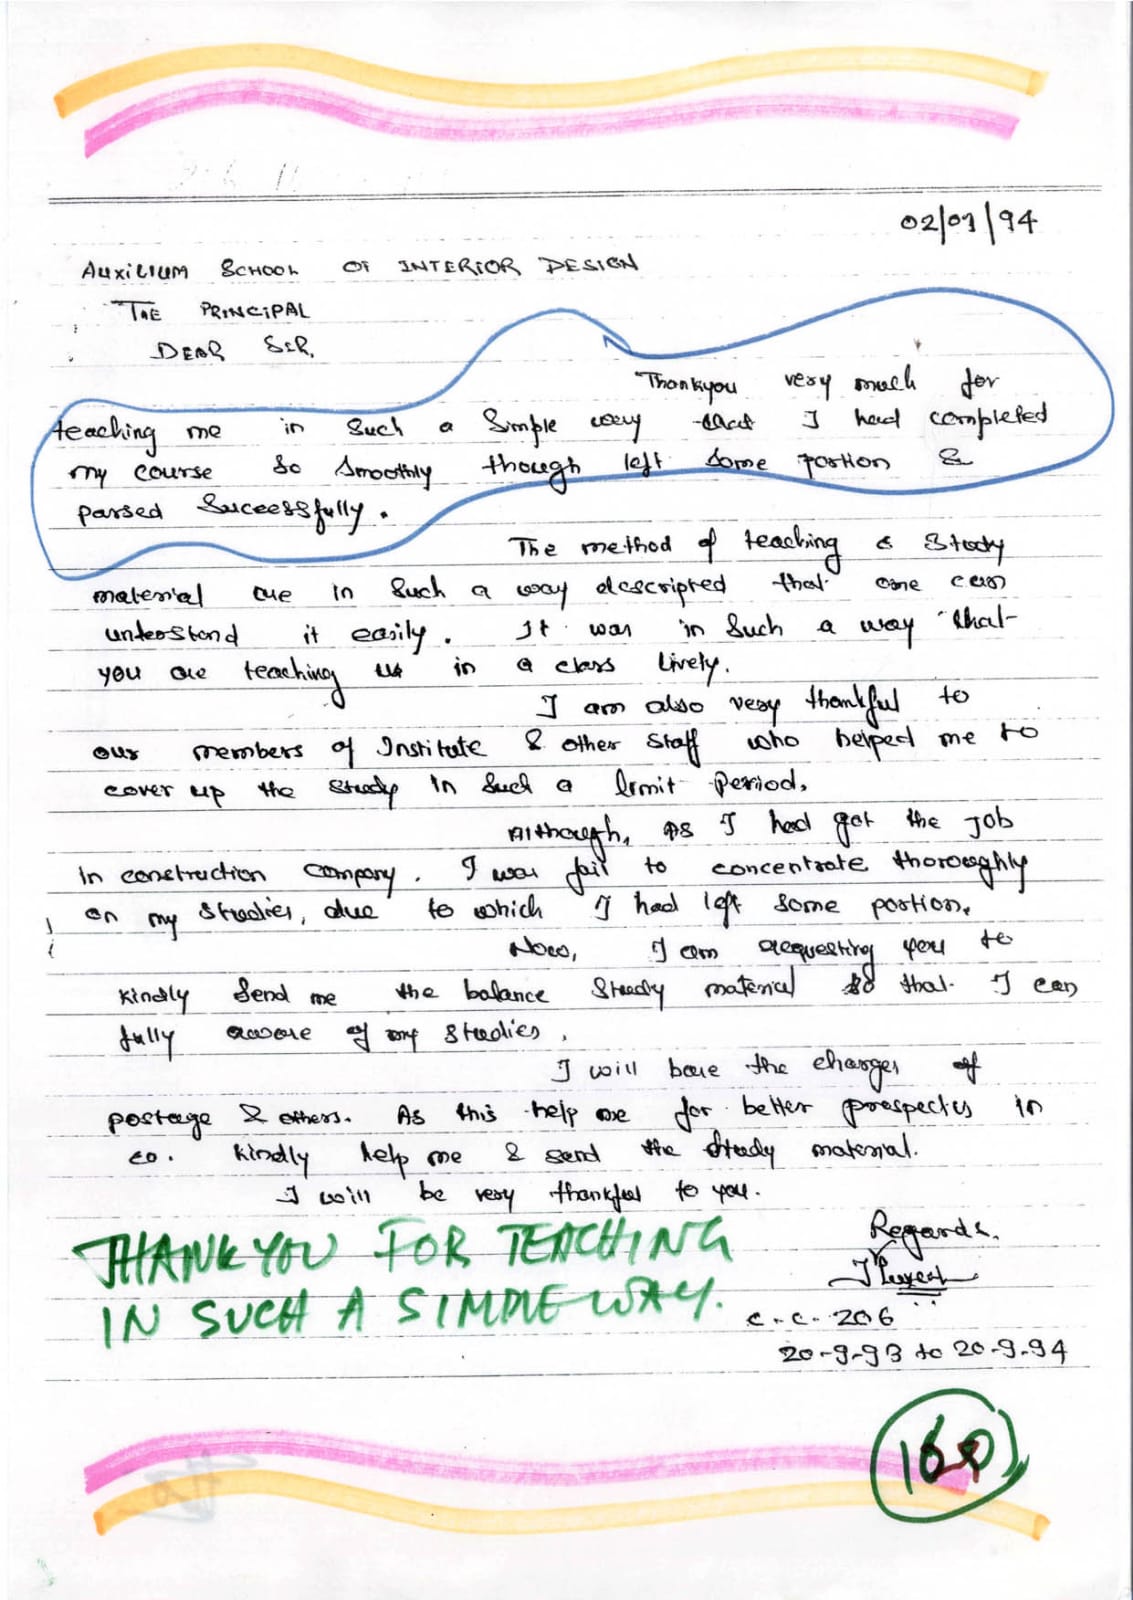 02/01/94
AUXILIUM SCHOOL OF INTERIOR DESIGN
THE PRINCIPAL
DEAR SIR,
Thankyou very much for
teaching me in such a simple way that I had completed
my course so smoothly though left some portion &
parsed successfully.
The method of teaching & study
material are in such a way descripted that one can
understand it easily. It was in such a way that
you are teaching us in a class lively.
I am also very thankful to
our members of Institute & other staff who helped me to
cover up the study in such a limit period.
Although, as I had got the job
in construction company. I was fail to concentrate thoroughly
on my studies, due to which I had left some portion.
Now, I am requesting you to
kindly send me the balance study material so that I can
fully aware of my studies.
I will bare the charges of
postage & others. As this help me for better prospects in
co. kindly help me & send the study material.
I will be very thankful to you.
THANK YOU FOR TEACHING
IN SUCH A SIMPLE WAY.
Regards.
C.C. 206
20-9-93 to 20-9-94
160